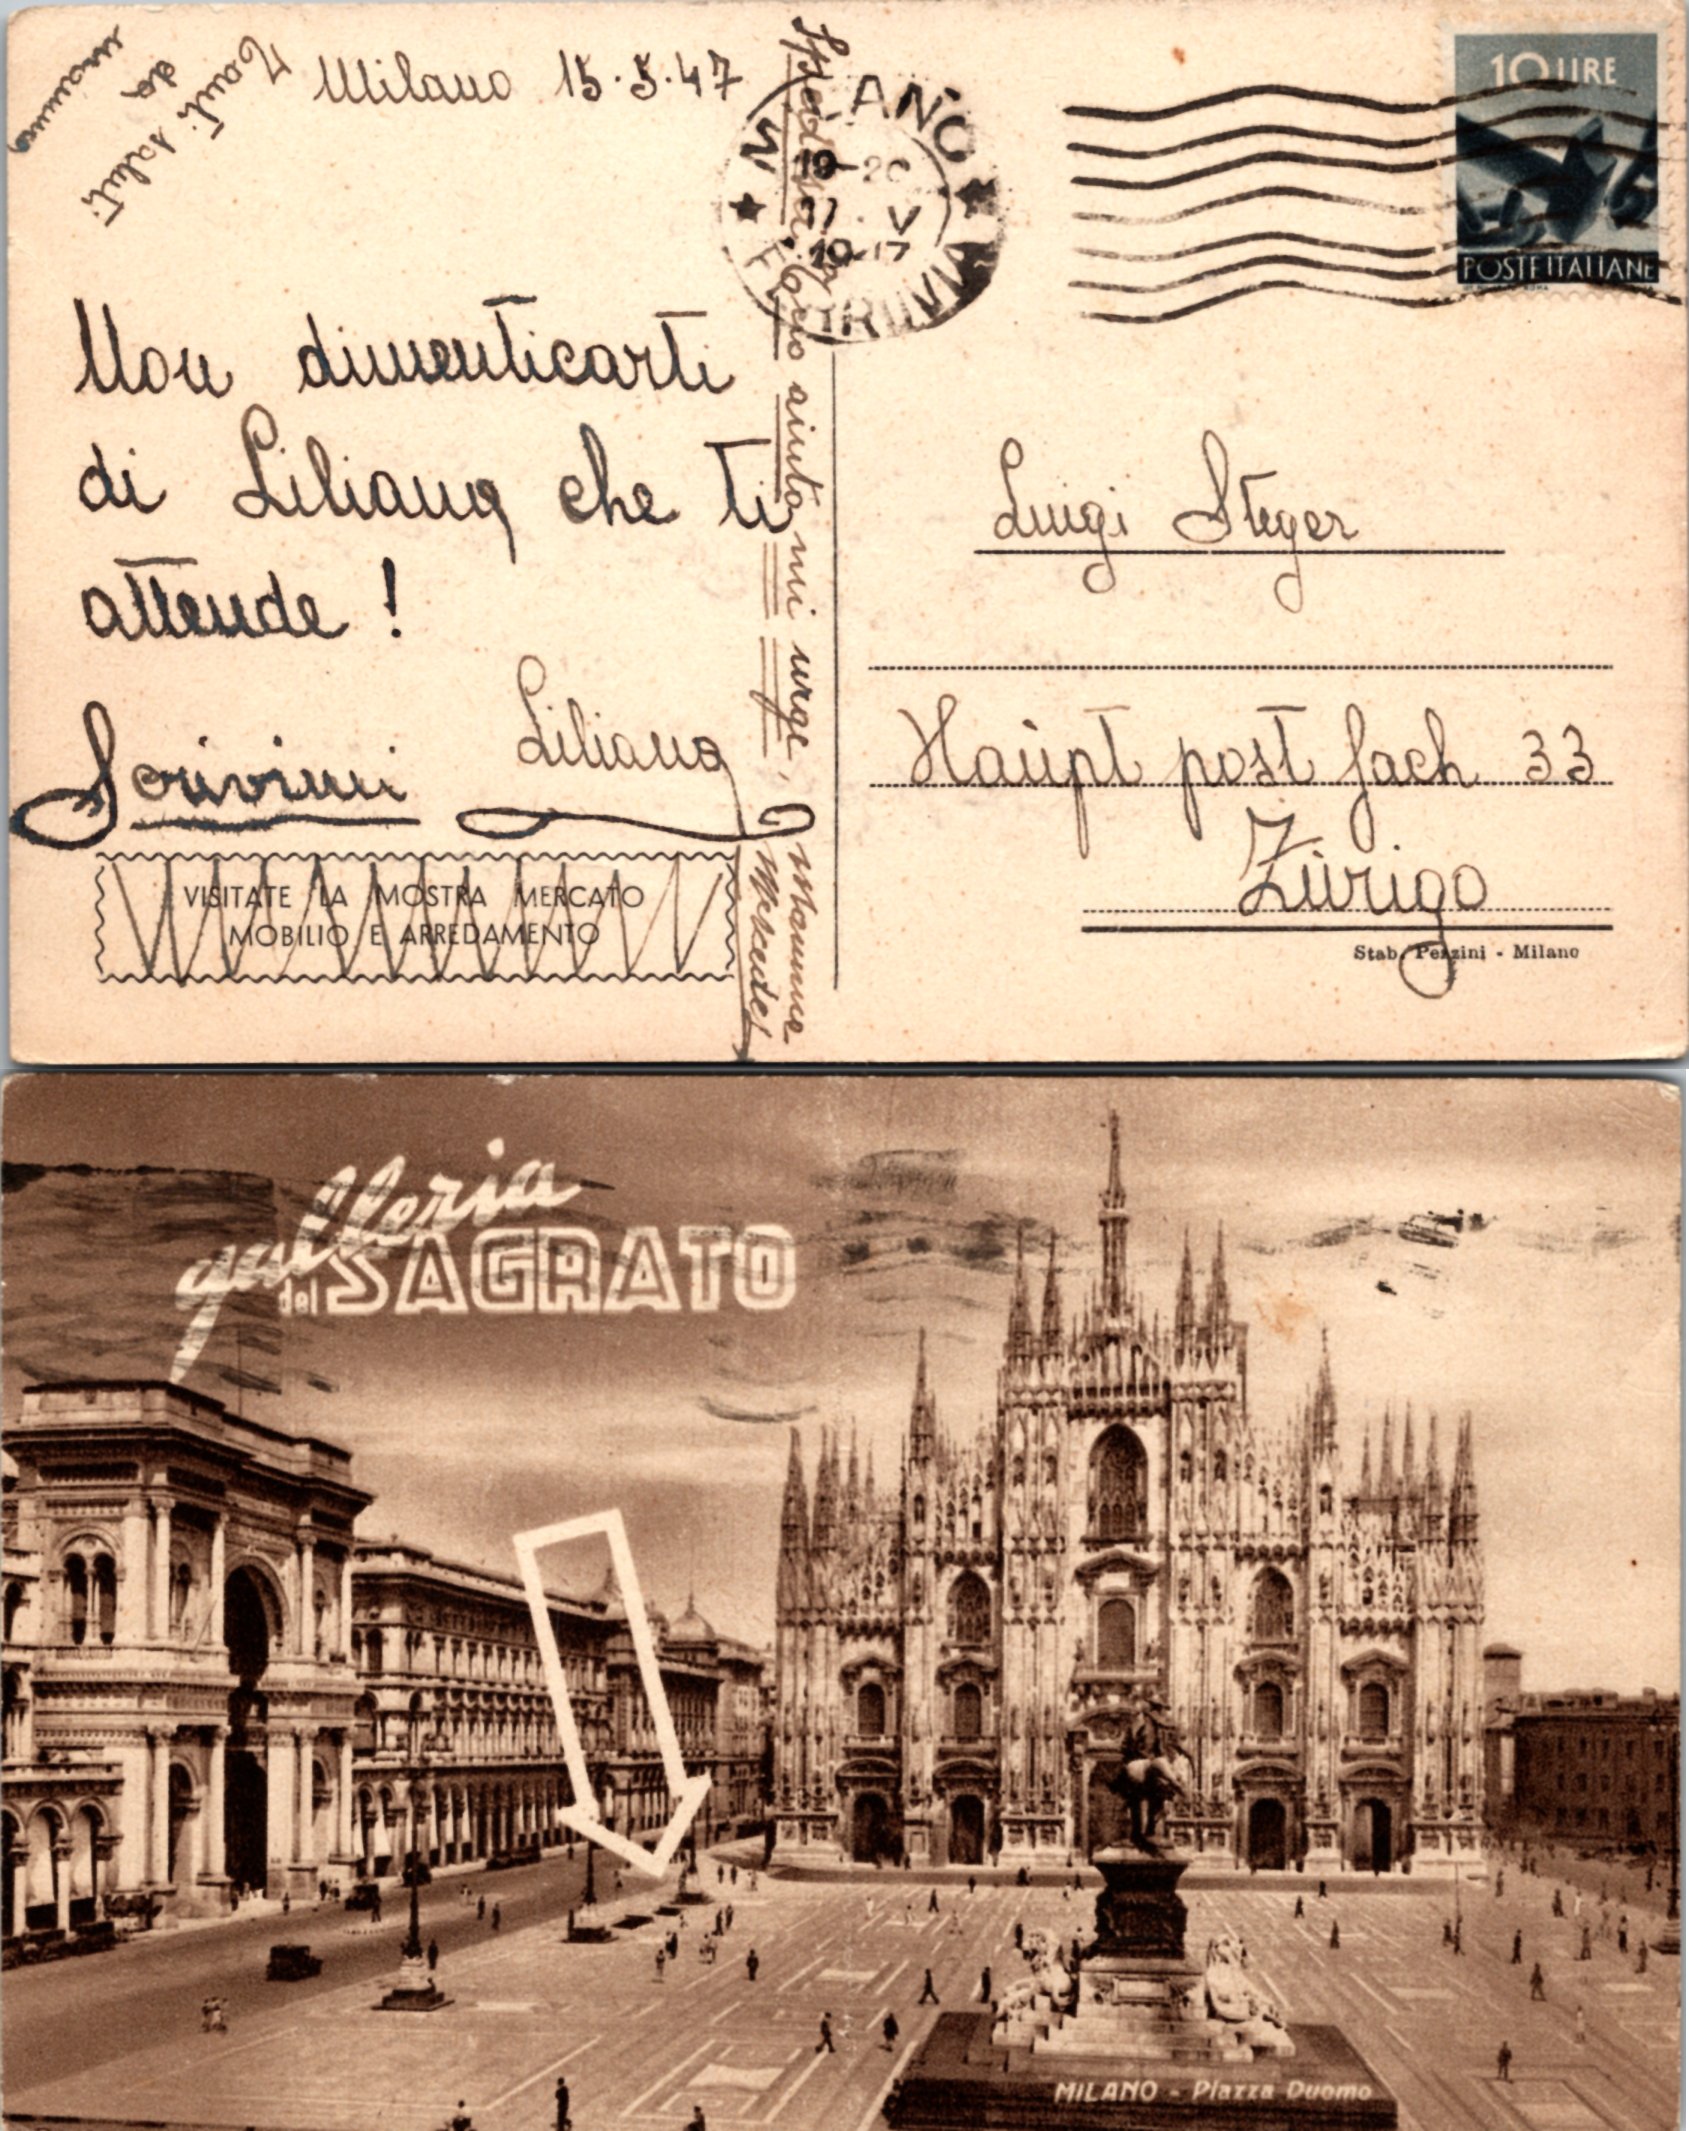 Milano 15.5.47
Tanti
saluti
da
mamma
Non dimenticarti
di Liliana che ti
attende!
Liliana
Scrivimi
VISITATE LA MOSTRA MERCATO
MOBILIO E ARREDAMENTO
aiuto mi urge,
Mamma
Mercedes
MILANO
19-20
17 V
FERROVIA
10 LIRE
POSTE ITALIANE
Luigi Steger
Haüpt post fach 33
Zürigo
Stab. Pezzini - Milano
galleria
del SAGRATO
MILANO - Piazza Duomo